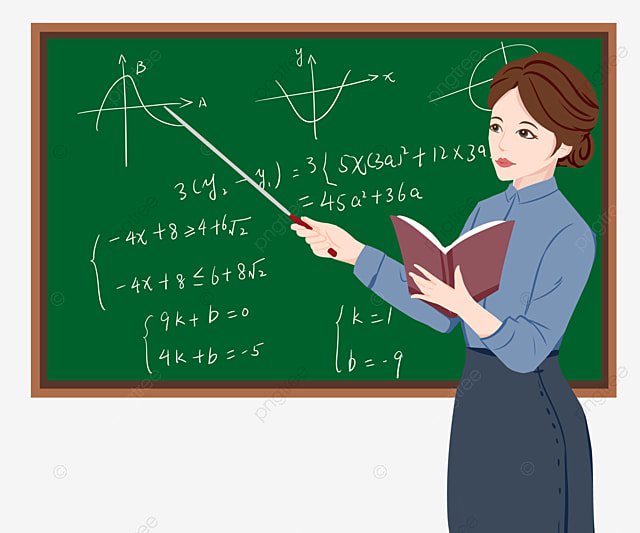 B
A
y
x
3(y₂-y₁)=3{5X(3a)²+12X3a
=45a²+36a
-4x+8≥4+6√2
-4x+8≤6+8√2
9k+b=0
4k+b=-5
k=1
b=-9
pngtree